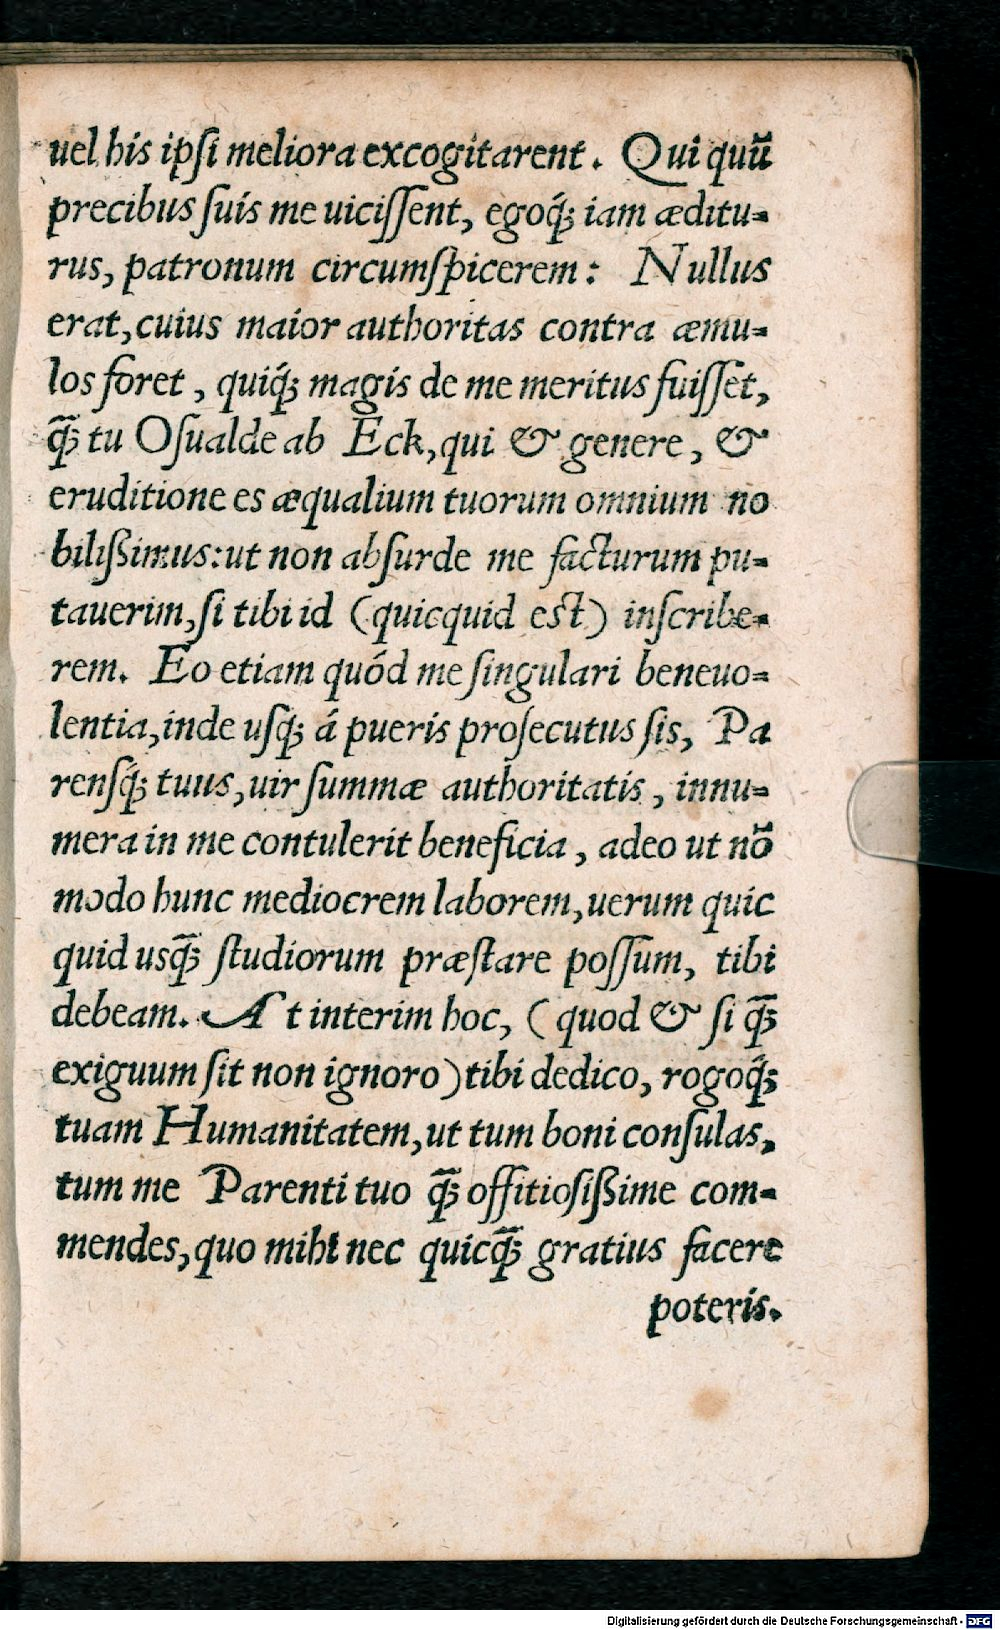 uel his ipſi meliora excogitarent. Qui quũ
precibus ſuis me uiciſſent, egoq́; iam æditu-
rus, patronum circumſpicerem: Nullus
erat, cuius maior authoritas contra æmu-
los foret, quiq́; magis de me meritus fuiſſet,
q̃; tu Oſualde ab Eck, qui & genere, &
eruditione es æqualium tuorum omnium no
bilißimus: ut non abſurde me facturum pu-
tauerim, ſi tibi id (quicquid est) inſcribe-
rem. Eo etiam quód me ſingulari beneuo-
lentia, inde uſq; á pueris proſecutus ſis, Pa
renſq́; tuus, uir ſummæ authoritatis, innu-
mera in me contulerit beneficia, adeo ut nõ
modo hunc mediocrem laborem, uerum quic
quid usq̃; ſtudiorum præſtare poſſum, tibi
debeam. At interim hoc, (quod & ſi q̃;
exiguum ſit non ignoro) tibi dedico, rogoq́;
tuam Humanitatem, ut tum boni conſulas,
tum me Parenti tuo q̃; offitioſißime com-
mendes, quo mihi nec quicq̃; gratius facere
poteris.
Digitalisierung gefördert durch die Deutsche Forschungsgemeinschaft - DFG